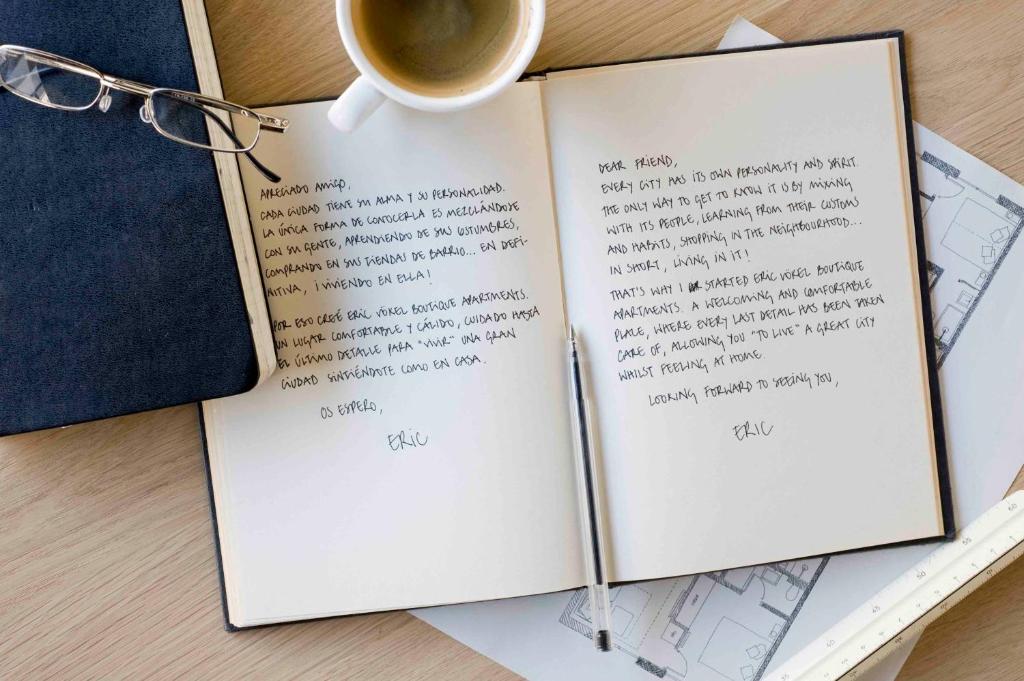 APRECIADO AMIGO,
CADA CIUDAD TIENE SU ALMA Y SU PERSONALIDAD.
LA ÚNICA FORMA DE CONOCERLA ES MEZCLÁNDOSE
CON SU GENTE, APRENDIENDO DE SUS COSTUMBRES,
COMPRANDO EN SUS TIENDAS DE BARRIO... EN DEFI-
NITIVA, ¡VIVIENDO EN ELLA!
POR ESO CREÉ ERIC VÖKEL BOUTIQUE APARTMENTS.
UN LUGAR COMFORTABLE Y CÁLIDO, CUIDADO HASTA
EL ÚLTIMO DETALLE PARA "VIVIR" UNA GRAN
CIUDAD SINTIÉNDOTE COMO EN CASA.
OS ESPERO,
ERIC
DEAR FRIEND,
EVERY CITY HAS ITS OWN PERSONALITY AND SPIRIT.
THE ONLY WAY TO GET TO KNOW IT IS BY MIXING
WITH ITS PEOPLE, LEARNING FROM THEIR CUSTOMS
AND HABITS, SHOPPING IN THE NEIGHBOURHOOD...
IN SHORT, LIVING IN IT!
THAT'S WHY I STARTED ERIC VÖKEL BOUTIQUE
APARTMENTS. A WELCOMING AND COMFORTABLE
PLACE, WHERE EVERY LAST DETAIL HAS BEEN TAKEN
CARE OF, ALLOWING YOU "TO LIVE" A GREAT CITY
WHILST FEELING AT HOME.
LOOKING FORWARD TO SEEING YOU,
ERIC